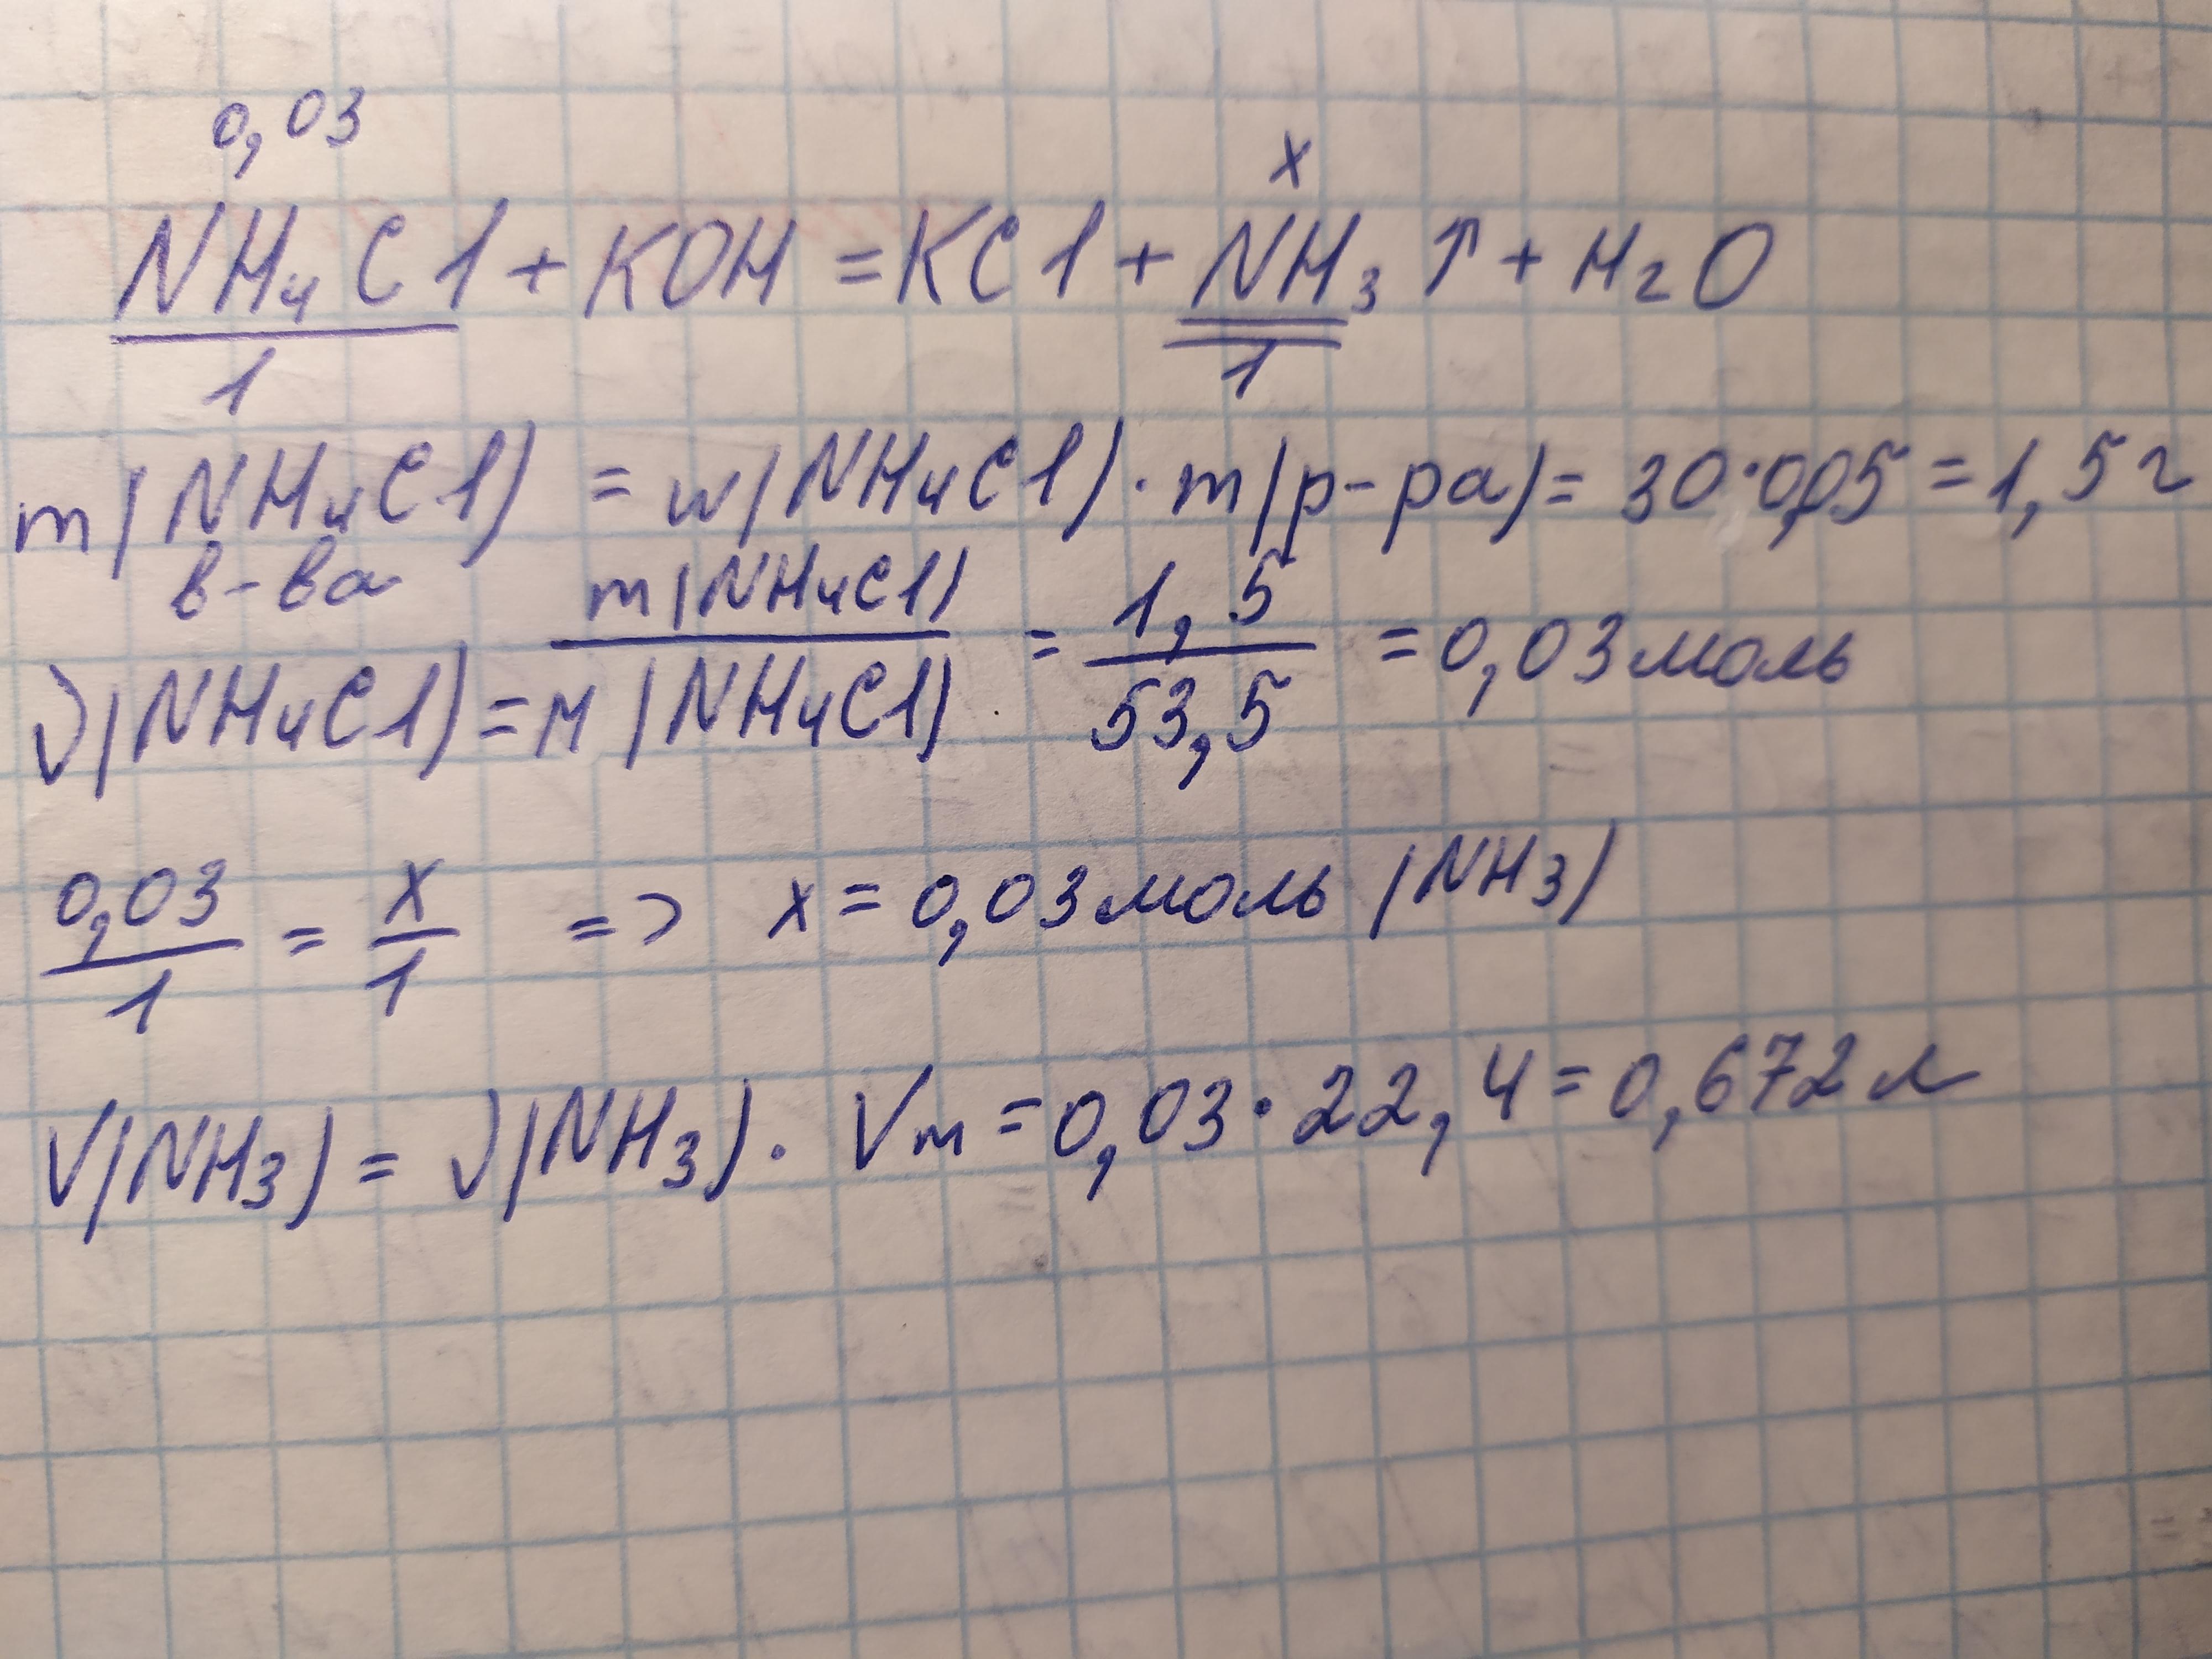 0,03
x
NH₄Cl + KOH = KCl + NH₃ ↑ + H₂O
1
1
m(NH₄Cl) = w(NH₄Cl) · m(р-ра) = 30·0,05 = 1,5 г
в-ва
ν(NH₄Cl) = m(NH₄Cl) / M(NH₄Cl) = 1,5 / 53,5 = 0,03 моль
0,03 / 1 = x / 1 => x = 0,03 моль (NH₃)
V(NH₃) = ν(NH₃) · Vm = 0,03 · 22,4 = 0,672 л